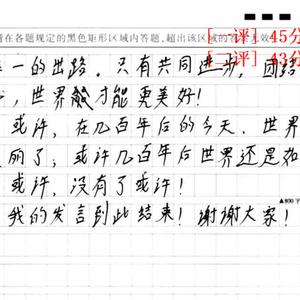 请在各题规定的黑色矩形区域内答题,超出该区域的
[一评] 45分
[二评] 43分
一的出路。只有共同进步,团
,世界才能更美好!
或许,在几百年后的今天,世界
丽了;或许几百年后世界还是如
或许,没有了或许!
我的发言到此结束!谢谢大家!
▲800